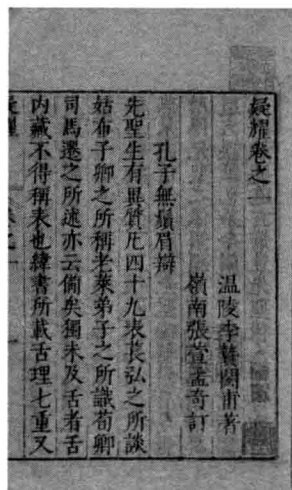 疑耀卷之一
温陵李贄閎甫著
嶺南張萱孟奇訂
孔子無鬚眉辯
先聖生有異質凡四十九表萇弘之所談
姑布子卿之所稱老萊弟子之所識荀卿
司馬遷之所述亦云備矣獨未及舌者舌
内藏不得稱表也緯書所載舌理七重又
疑耀
卷之一
一